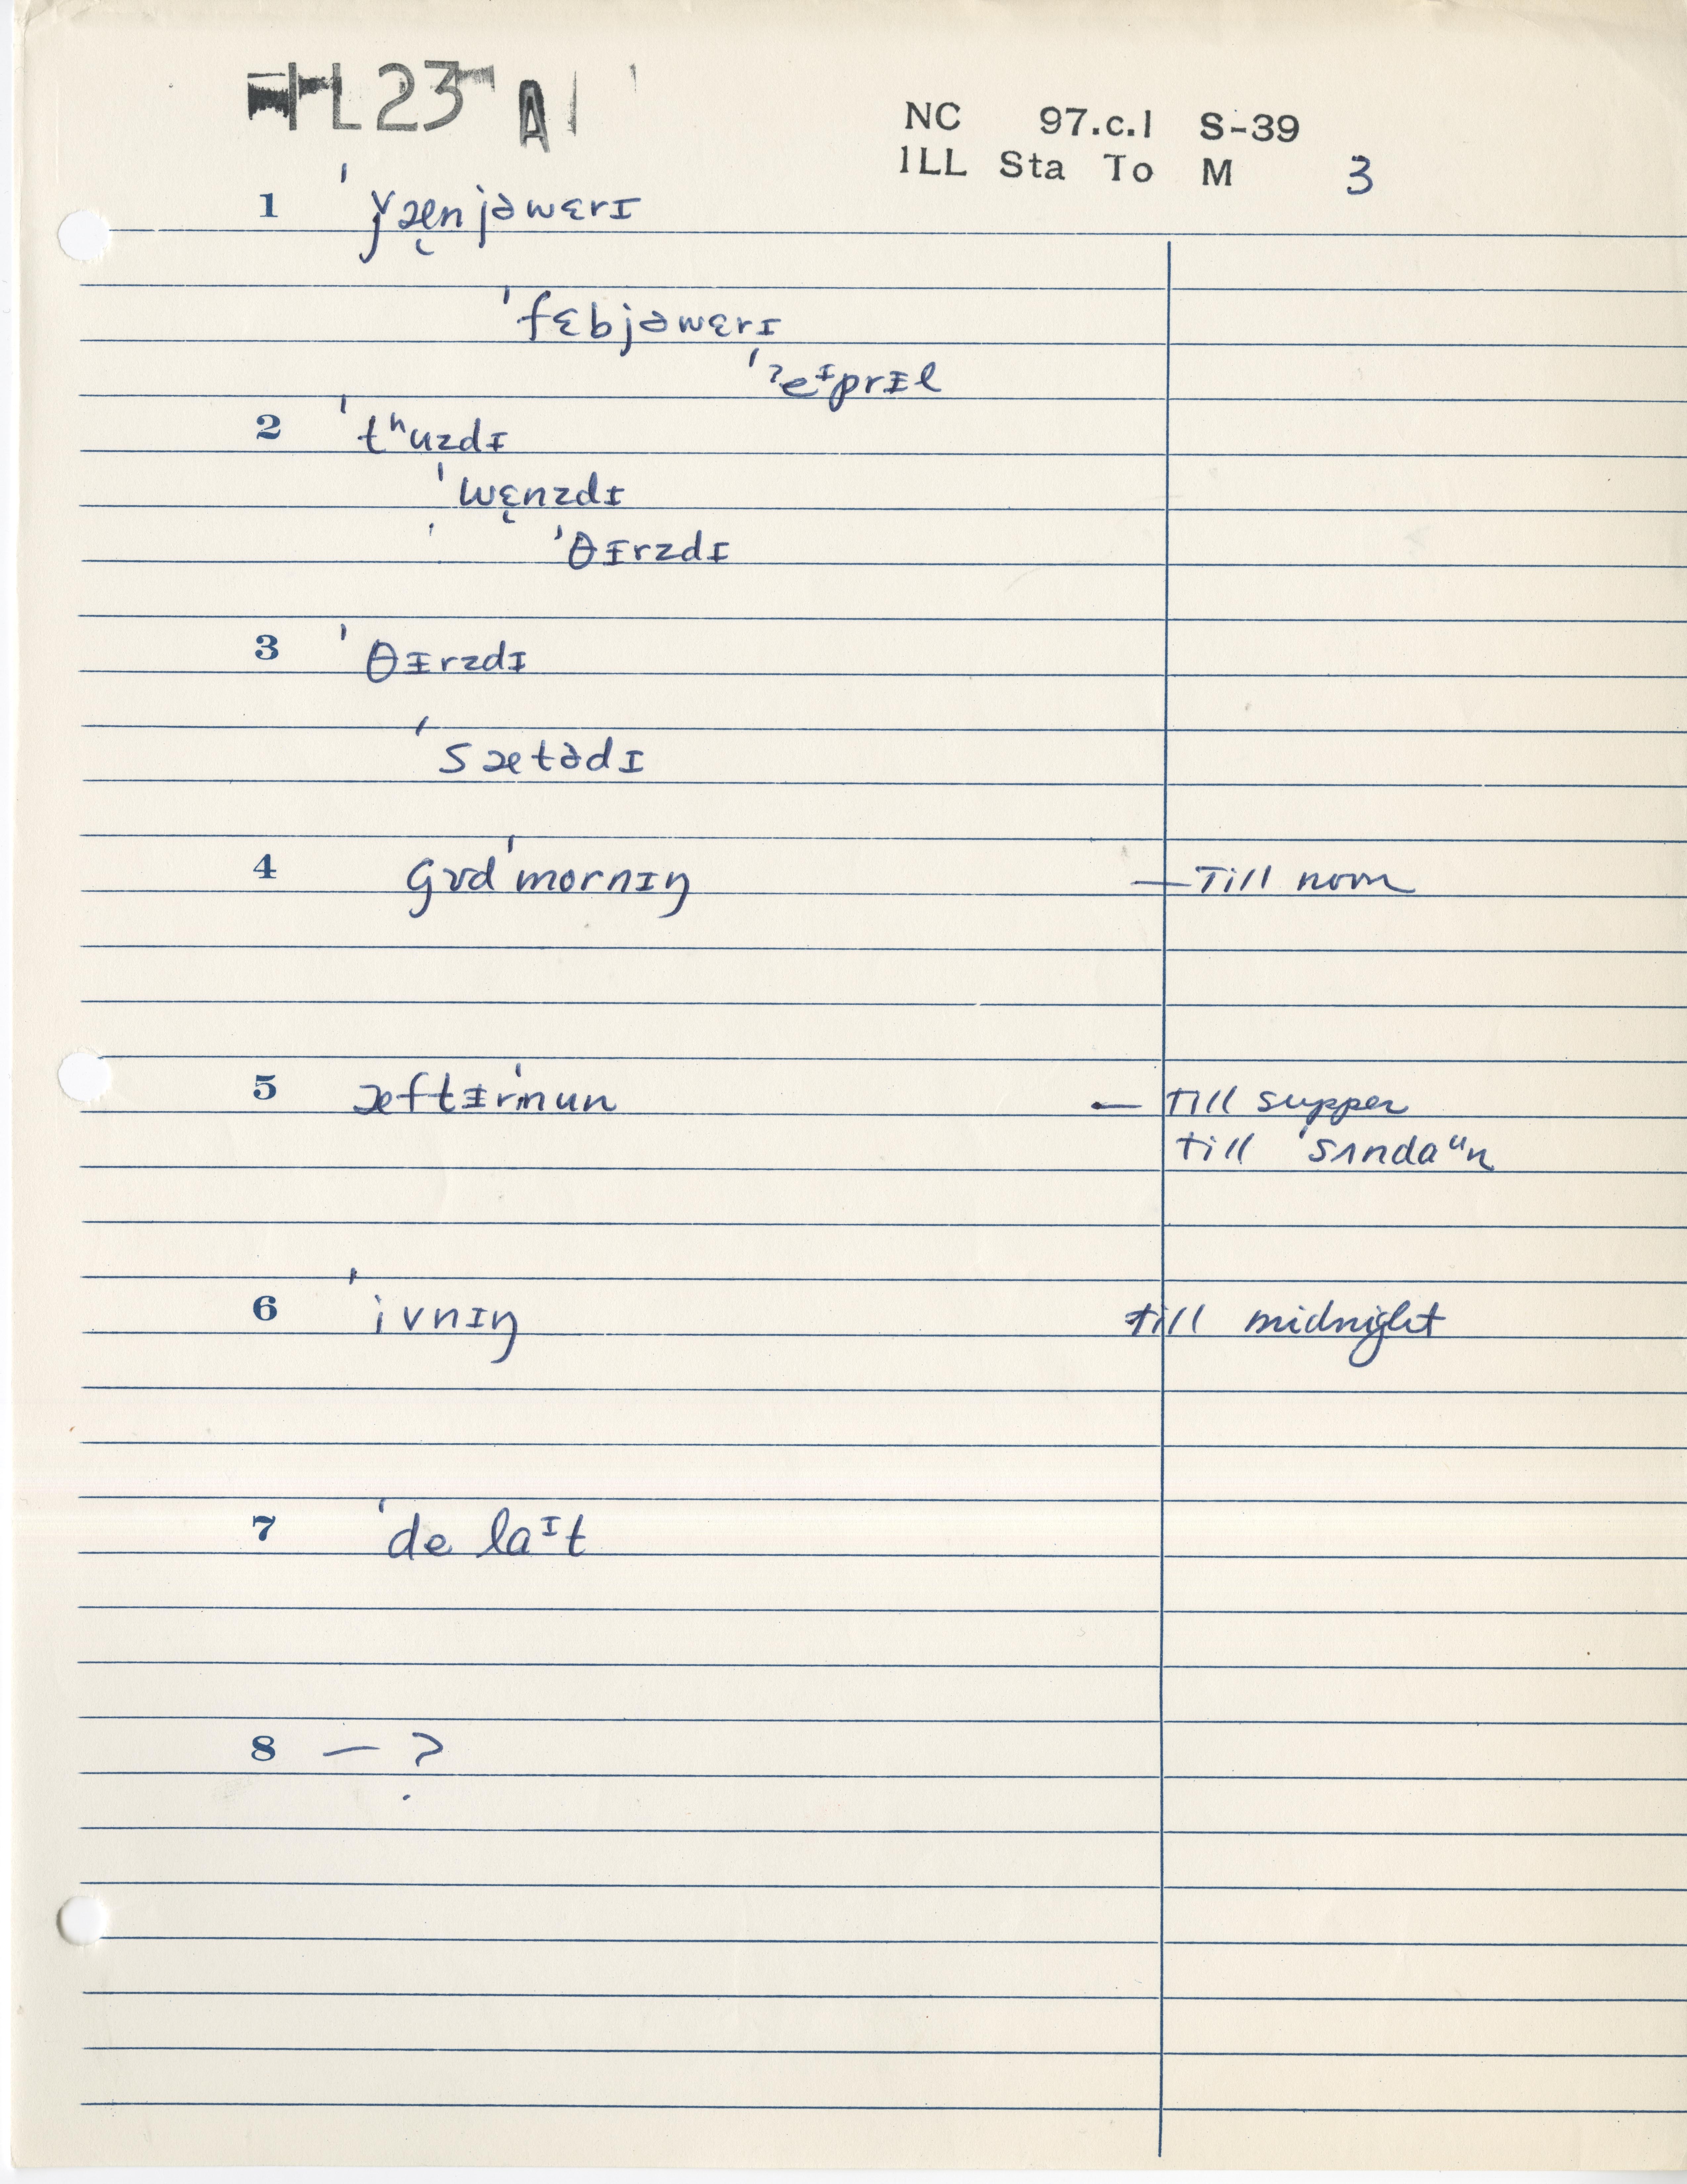 L 23 A
NC 97.c.1 S-39
ILL Sta To M 3
1 ˈǰæ̨njəwɛrɪ
ˈfɛbjəwɛrɪ
ˈʔeᶦprɪl
2 ˈtʰuzdɪ
ˈwɛ̨nzdɪ
ˈθɪrzdɪ
3 ˈθɪrzdɪ
ˈsætədɪ
4 gʊdˈmornɪŋ — Till noon
5 æftɪrˈmun — till supper
till ˈsʌndaᵘn
6 ˈivnɪŋ till midnight
7 ˈde laᶦt
8 — ?